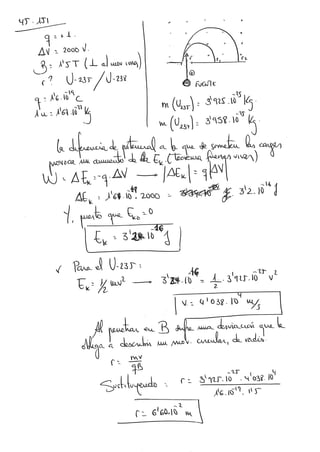 45.151
q = +1.
ΔV = 2000 V.
B = 1'5 T (⊥ al mov. iones)
r? U-235 / U-238
q = 1'6.10^-19 C
1u = 1'67.10^-27 Kg
r1 r2
FUENTE
m (U235) = 3'925.10^-25 Kg.
m (U237) = 3'958.10^-25 Kg.
La diferencia de potencial a la que se someten las cargas
provoca un aumento de Ek (teorema fuerzas vivas)
W = ΔEk = -q.ΔV → |ΔEk| = q|ΔV|
ΔEk = 1'6.10^-19. 2000 = 3'2.10^-16 J
Y, puesto que Eko = 0
Ek = 3'2.10^-16 J
√ Para el U-235:
Ek = 1/2 mv² → 3'2.10^-16 = 1/2 . 3'925.10^-25 v²
v = 4'038.10^4 m/s
Al penetrar en B sufre una desviación que le
obliga a describir un mov. circular, de radio.
r = mv/qB
Sustituyendo: r = 3'925.10^-25 . 4'038.10^4 / 1'6.10^-19. 1'5
r = 6'60.10^-2 m